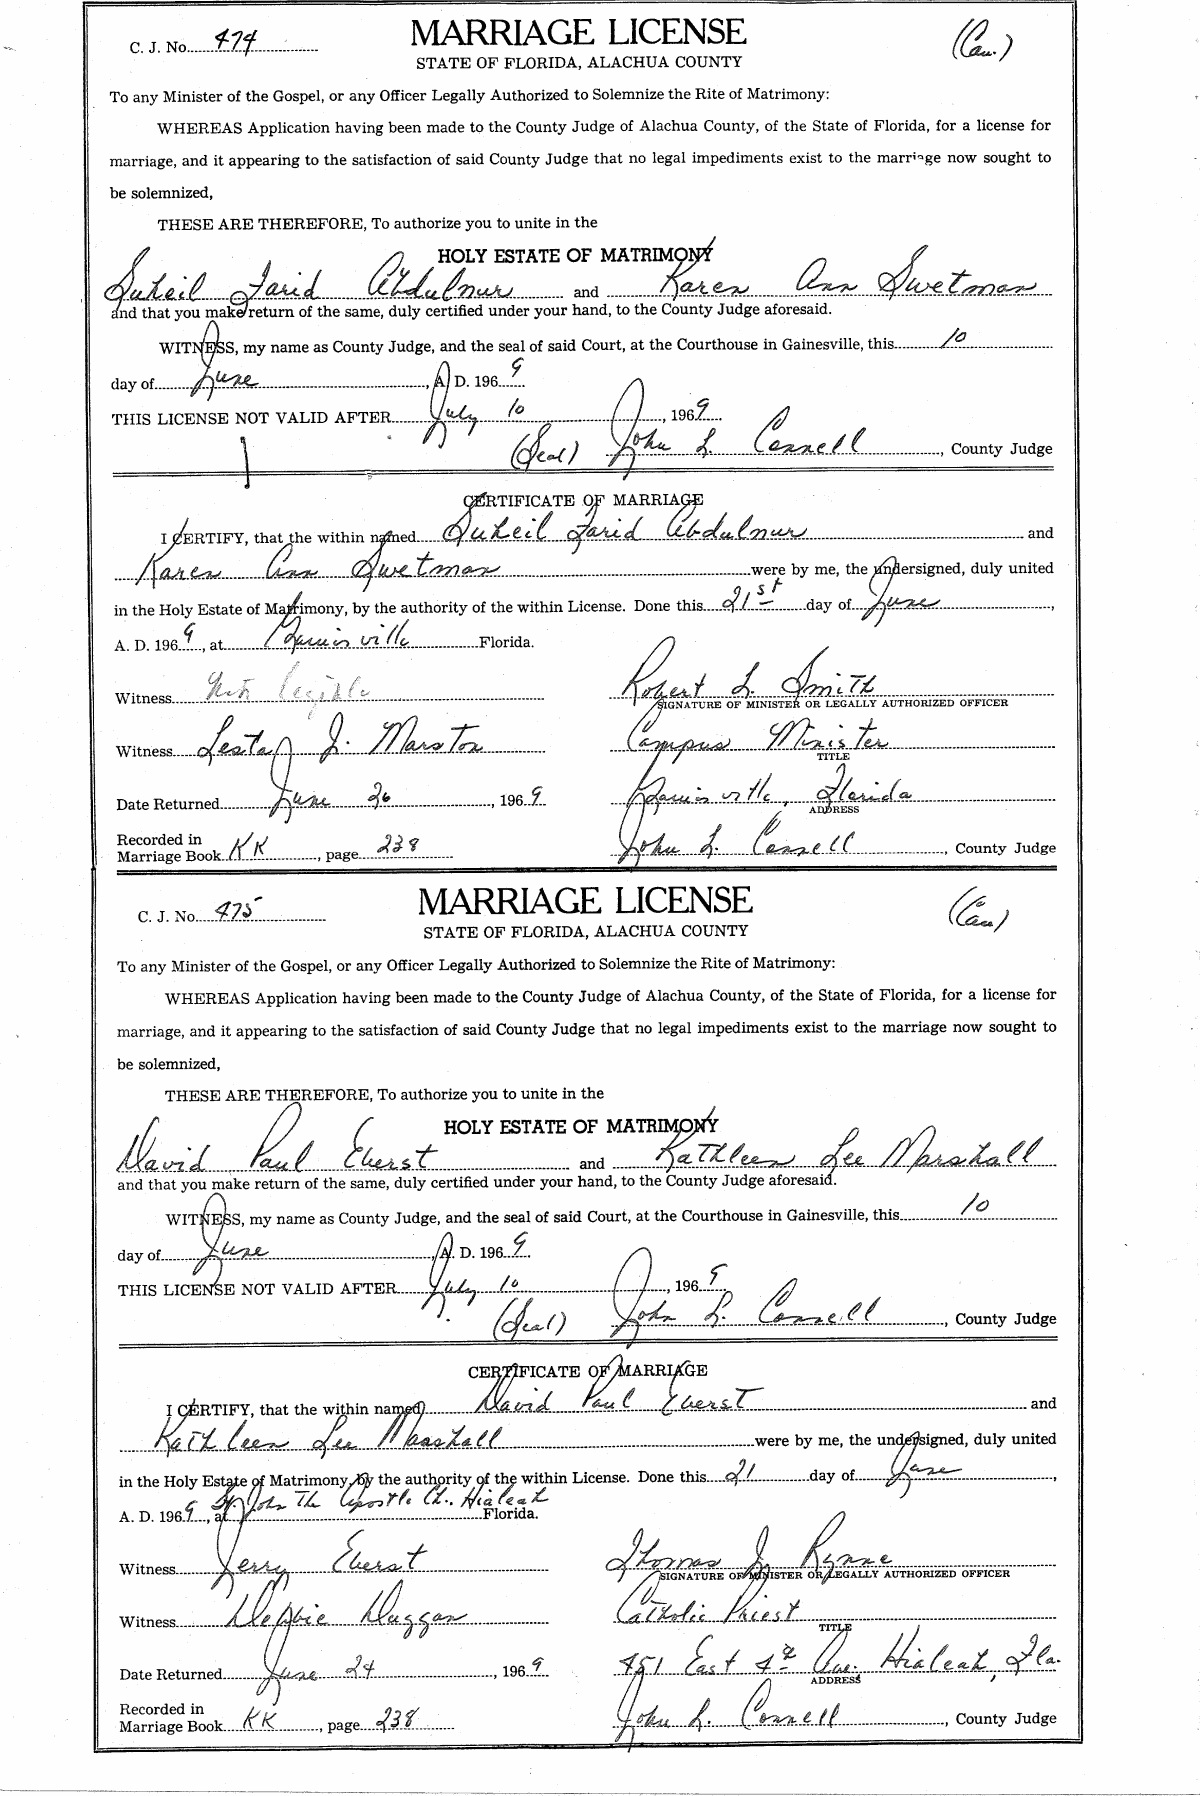 C. J. No. 474
MARRIAGE LICENSE
(Cau.)
STATE OF FLORIDA, ALACHUA COUNTY
To any Minister of the Gospel, or any Officer Legally Authorized to Solemnize the Rite of Matrimony:
WHEREAS Application having been made to the County Judge of Alachua County, of the State of Florida, for a license for
marriage, and it appearing to the satisfaction of said County Judge that no legal impediments exist to the marriage now sought to
be solemnized,
THESE ARE THEREFORE, To authorize you to unite in the
HOLY ESTATE OF MATRIMONY
Suheil Farid Abdulnur and Karen Ann Swetman
and that you make return of the same, duly certified under your hand, to the County Judge aforesaid.
WITNESS, my name as County Judge, and the seal of said Court, at the Courthouse in Gainesville, this 10
day of June, A. D. 1969
THIS LICENSE NOT VALID AFTER July 10, 1969
(Seal) John L. Connell, County Judge
CERTIFICATE OF MARRIAGE
I CERTIFY, that the within named Suheil Farid Abdulnur and
Karen Ann Swetman were by me, the undersigned, duly united
in the Holy Estate of Matrimony, by the authority of the within License. Done this 21st day of June,
A. D. 1969, at Gainesville Florida.
Witness Not legible Robert L. Smith
SIGNATURE OF MINISTER OR LEGALLY AUTHORIZED OFFICER
Witness Lesta J. Marston Campus Minister
TITLE
Date Returned June 26, 1969 Gainesville, Florida
ADDRESS
Recorded in
Marriage Book KK, page 238 John L. Connell, County Judge
C. J. No. 475
MARRIAGE LICENSE
(Cau)
STATE OF FLORIDA, ALACHUA COUNTY
To any Minister of the Gospel, or any Officer Legally Authorized to Solemnize the Rite of Matrimony:
WHEREAS Application having been made to the County Judge of Alachua County, of the State of Florida, for a license for
marriage, and it appearing to the satisfaction of said County Judge that no legal impediments exist to the marriage now sought to
be solemnized,
THESE ARE THEREFORE, To authorize you to unite in the
HOLY ESTATE OF MATRIMONY
David Paul Eberst and Kathleen Lee Marshall
and that you make return of the same, duly certified under your hand, to the County Judge aforesaid.
WITNESS, my name as County Judge, and the seal of said Court, at the Courthouse in Gainesville, this 10
day of June, A. D. 1969.
THIS LICENSE NOT VALID AFTER July 10, 1969
(Seal) John L. Connell, County Judge
CERTIFICATE OF MARRIAGE
I CERTIFY, that the within named David Paul Eberst and
Kathleen Lee Marshall were by me, the undersigned, duly united
in the Holy Estate of Matrimony, by the authority of the within License. Done this 21 day of June,
A. D. 1969, at St. John The Apostle Ch., Hialeah Florida.
Witness Jerry Eberst Thomas J. Rynne
SIGNATURE OF MINISTER OR LEGALLY AUTHORIZED OFFICER
Witness Debbie Duggan Catholic Priest
TITLE
Date Returned June 24, 1969 451 East 4th Ave. Hialeah, Fla.
ADDRESS
Recorded in
Marriage Book KK, page 238 John L. Connell, County Judge